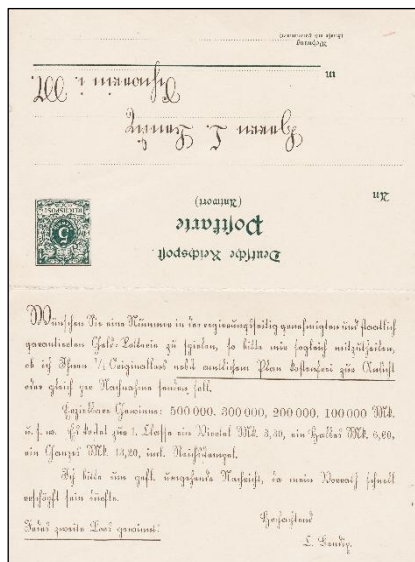 Deutsche Reichspost.
Postkarte
(Antwort)
An
REICHSPOST
5
Herrn L.
in
i. M.
Wohnung
Wünschen Sie eine Nummer in der regierungsseitig genehmigten und staatlich
garantierten Geld-Lotterie zu spielen, so bitte mir sogleich mitzutheilen,
ob ich Ihnen 1/1 Originalloos nebst amtlichem Plan kostenfrei zur Ansicht
oder gleich per Nachnahme senden soll.
Gewinne: 500 000, 300 000, 200 000, 100 000 Mk.
u. s. w. Es kostet zur 1. Classe ein Viertel Mk. 3,30, ein Halbes Mk. 6,60,
ein Ganzes Mk. 13,20, incl. Reichsstempel.
Ich bitte um gefl. umgehende Nachricht, da mein Vorrath schnell
erschöpft sein dürfte.
Hochachtend
Jedes zweite Loos gewinnt!
L.